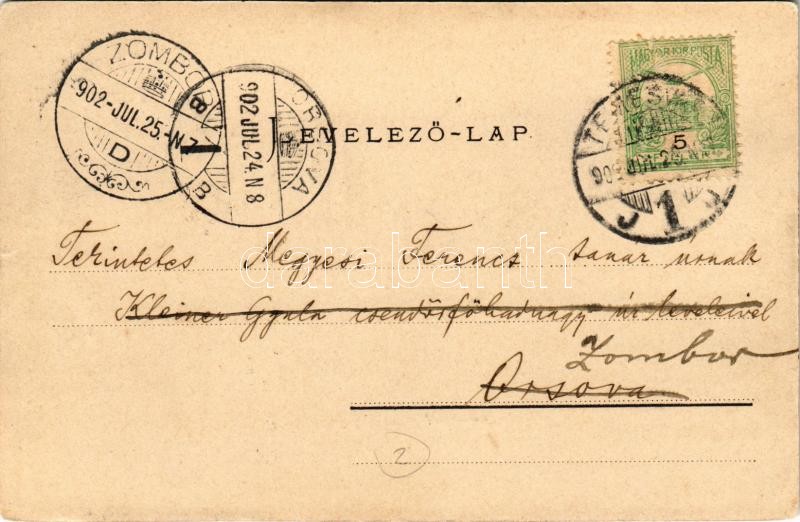 ZOMBOR
902-JUL.25.-N.7
D
ORSOVA
902 JUL 24 N 8
B B
LEVELEZŐ-LAP
MAGYAR KIR. POSTA
5
TEMESV
J 1 J
Tekintetes Megyesi Ferencz tanar úrnak
Kleiner Gyula csendőrfőhadnagy úr leveleivel
Zombor
Orsova
2
darabanth